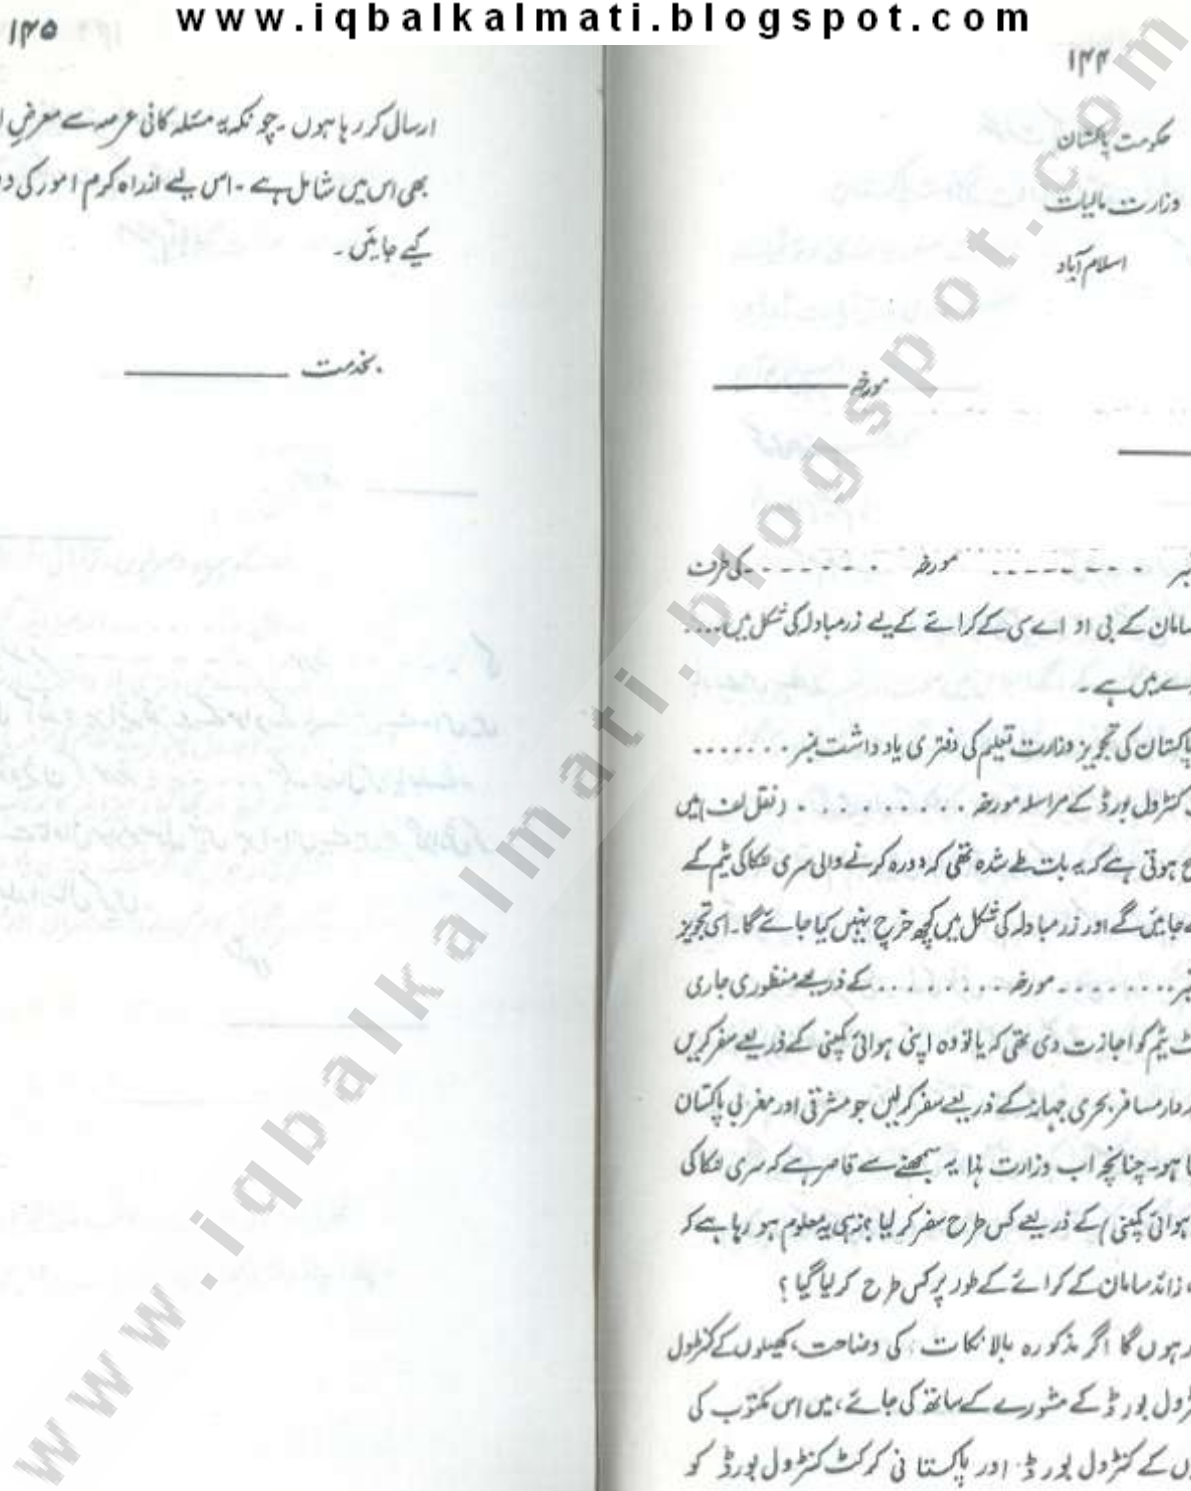 www.iqbalkalmati.blogspot.com
۱۴۴
حکومت پاکستان
وزارت مالیات
اسلام آباد
مورخہ
مورخہ ........ کی طرف
سامان کے بی او اے سی کے کرائے کے لیے زرمبادلہ کی شکل میں ....
میں ہے۔
پاکستان کی تجویز وزارت تعلیم کی دفتری یاد داشت نمبر .......
کنٹرول بورڈ کے مراسلہ مورخہ .......... (نقل لف ہیں
ہوتی ہے کہ یہ بات طے شدہ تھی کہ دورہ کرنے والی سری لنکا کی ٹیم کے
جائیں گے اور زر مبادلہ کی شکل میں کچھ خرچ نہیں کیا جائے گا۔ اسی تجویز
........ مورخہ ........ کے ذریعے منظوری جاری
ٹیم کو اجازت دی تھی کہ یا تو وہ اپنی ہوائی کمپنی کے ذریعے سفر کریں
مسافر بحری جہاز کے ذریعے سفر کرلیں جو مشرقی اور مغربی پاکستان
ہو۔ چنانچہ اب وزارت ہذا یہ سمجھنے سے قاصر ہے کہ سری لنکا کی
ہوائی کمپنی) کے ذریعے کس طرح سفر کر لیا؟ نہ ہی یہ معلوم ہو رہا ہے کہ
زائد سامان کے کرائے کے طور پر کس طرح کر لیا گیا؟
ہوں گا اگر مذکورہ بالا نکات کی وضاحت، کھیلوں کے کنٹرول
بورڈ کے مشورے کے ساتھ کی جائے، میں اس مکتوب کی
کے کنٹرول بورڈ اور پاکستانی کرکٹ کنٹرول بورڈ کو
۱۴۵
ارسال کر رہا ہوں۔ چونکہ یہ مسئلہ کافی عرصہ سے معرضِ
بھی اس میں شامل ہے۔ اس لیے ازراہ کرم امور کی
کیے جائیں۔
بخدمت
www.iqbalkalmati.blogspot.com